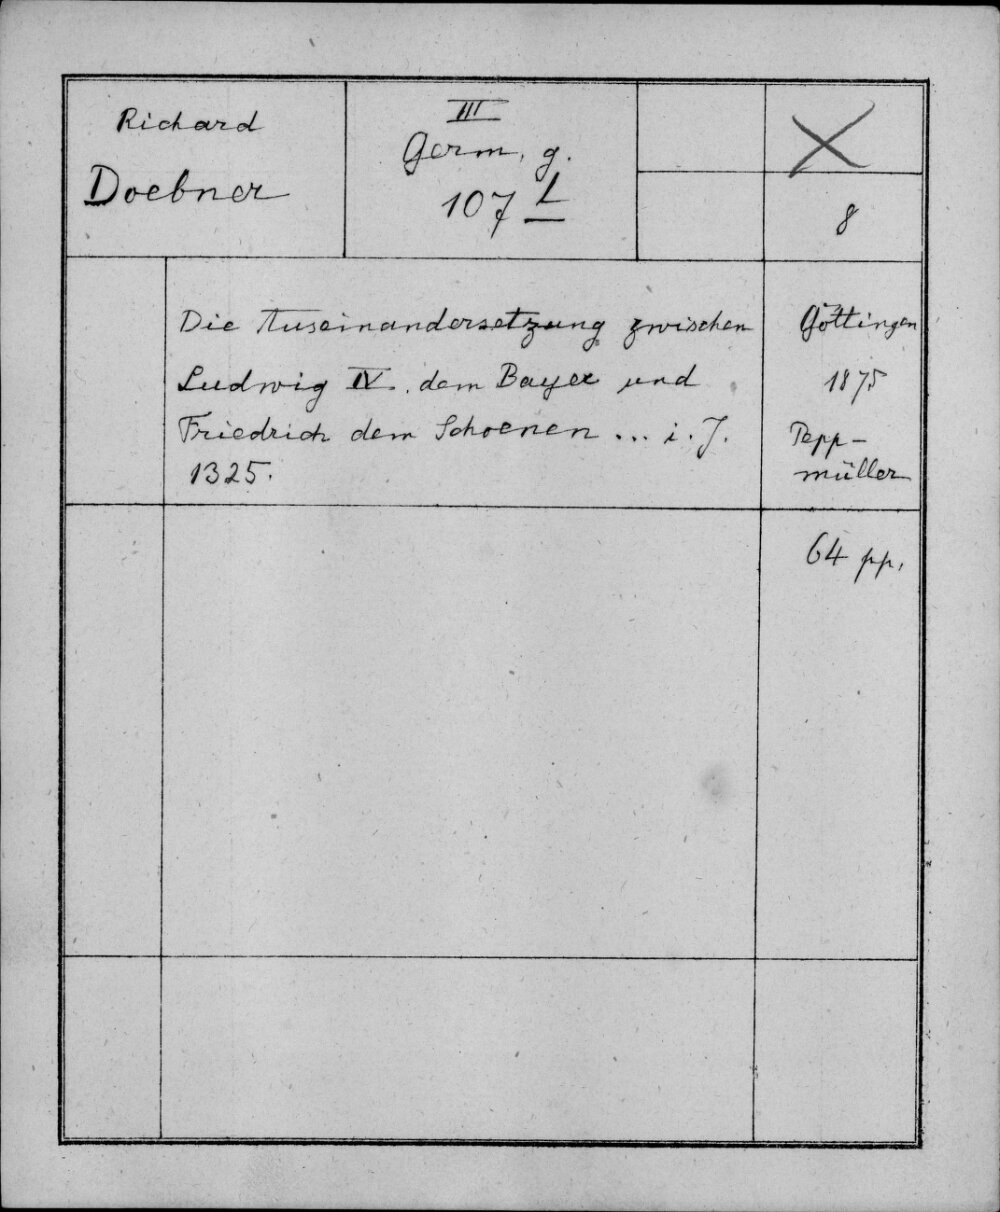 Richard
Doebner
III
Germ. g.
107 L
8
Die Auseinandersetzung zwischen
Ludwig IV. dem Bayer und
Friedrich dem Schoenen ... i. J.
1325.
Göttingen
1875
Pepp-
müller
64 pp.